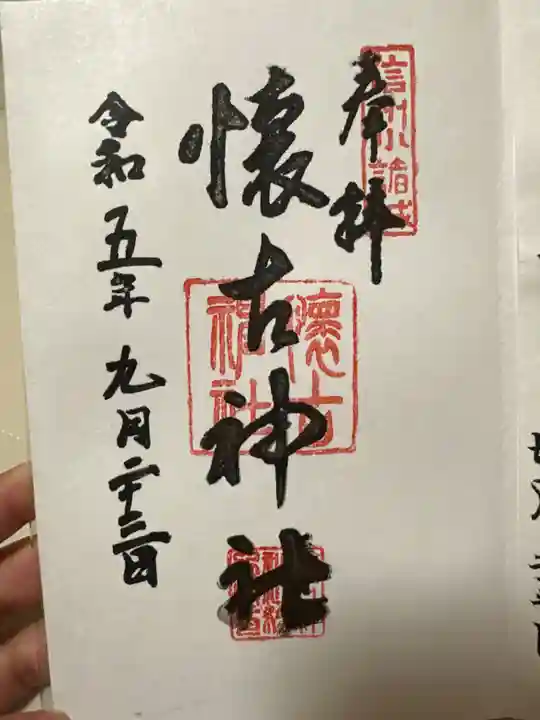 奉拝
信州小諸城
懐古神社
懐古神社
令和五年九月二十三日